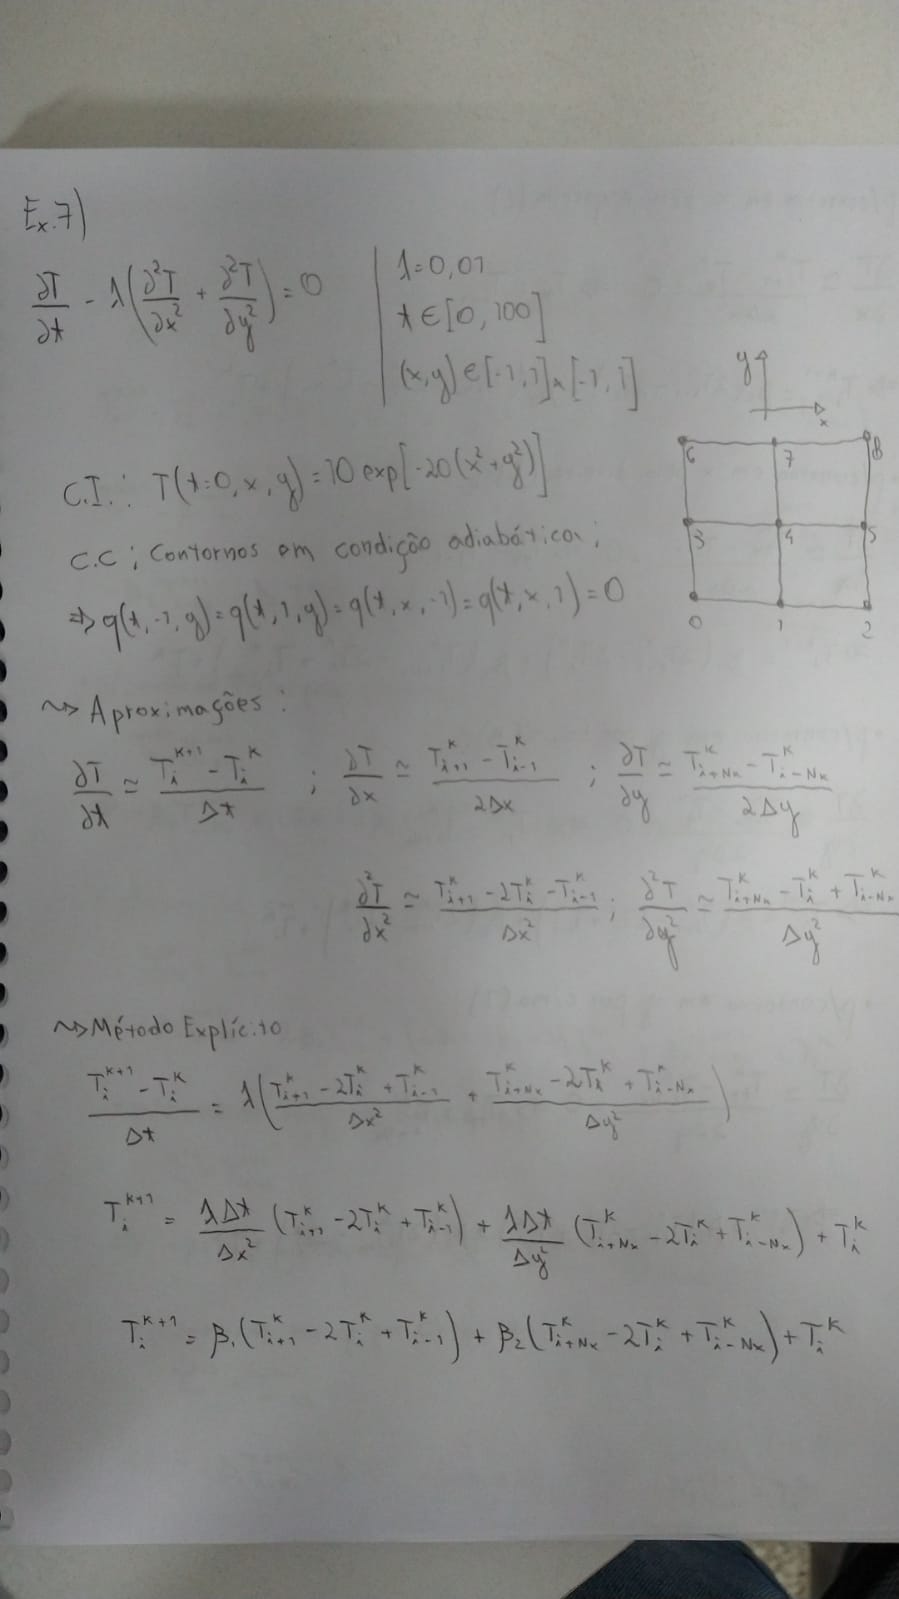 Ex.7)
∂T/∂t - λ(∂²T/∂x² + ∂²T/∂y²) = 0
λ=0,01
t ∈ [0, 100]
(x,y) ∈ [-1,1] x [-1,1]
y
x
6 7 8
3 4 5
0 1 2
C.I.: T(t=0, x, y) = 10 exp[-20(x²+y²)]
C.C ; Contornos em condição adiabática;
⇒ q(t,-1,y) = q(t,1,y) = q(t,x,-1) = q(t,x,1) = 0
~> Aproximações:
∂T/∂t ≃ (T_i^{k+1} - T_i^k)/Δt ; ∂T/∂x ≃ (T_{i+1}^k - T_{i-1}^k)/2Δx ; ∂T/∂y ≃ (T_{i+Nx}^k - T_{i-Nx}^k)/2Δy
∂²T/∂x² ≃ (T_{i+1}^k - 2T_i^k - T_{i-1}^k)/Δx² ; ∂²T/∂y² ≃ (T_{i+Nx}^k - T_i^k + T_{i-Nx}^k)/Δy²
~> Método Explícito
(T_i^{k+1} - T_i^k)/Δt = λ((T_{i+1}^k - 2T_i^k + T_{i-1}^k)/Δx² + (T_{i+Nx}^k - 2T_i^k + T_{i-Nx}^k)/Δy²)
T_i^{k+1} = λΔt/Δx² (T_{i+1}^k - 2T_i^k + T_{i-1}^k) + λΔt/Δy² (T_{i+Nx}^k - 2T_i^k + T_{i-Nx}^k) + T_i^k
T_i^{k+1} = β₁(T_{i+1}^k - 2T_i^k + T_{i-1}^k) + β₂(T_{i+Nx}^k - 2T_i^k + T_{i-Nx}^k) + T_i^k